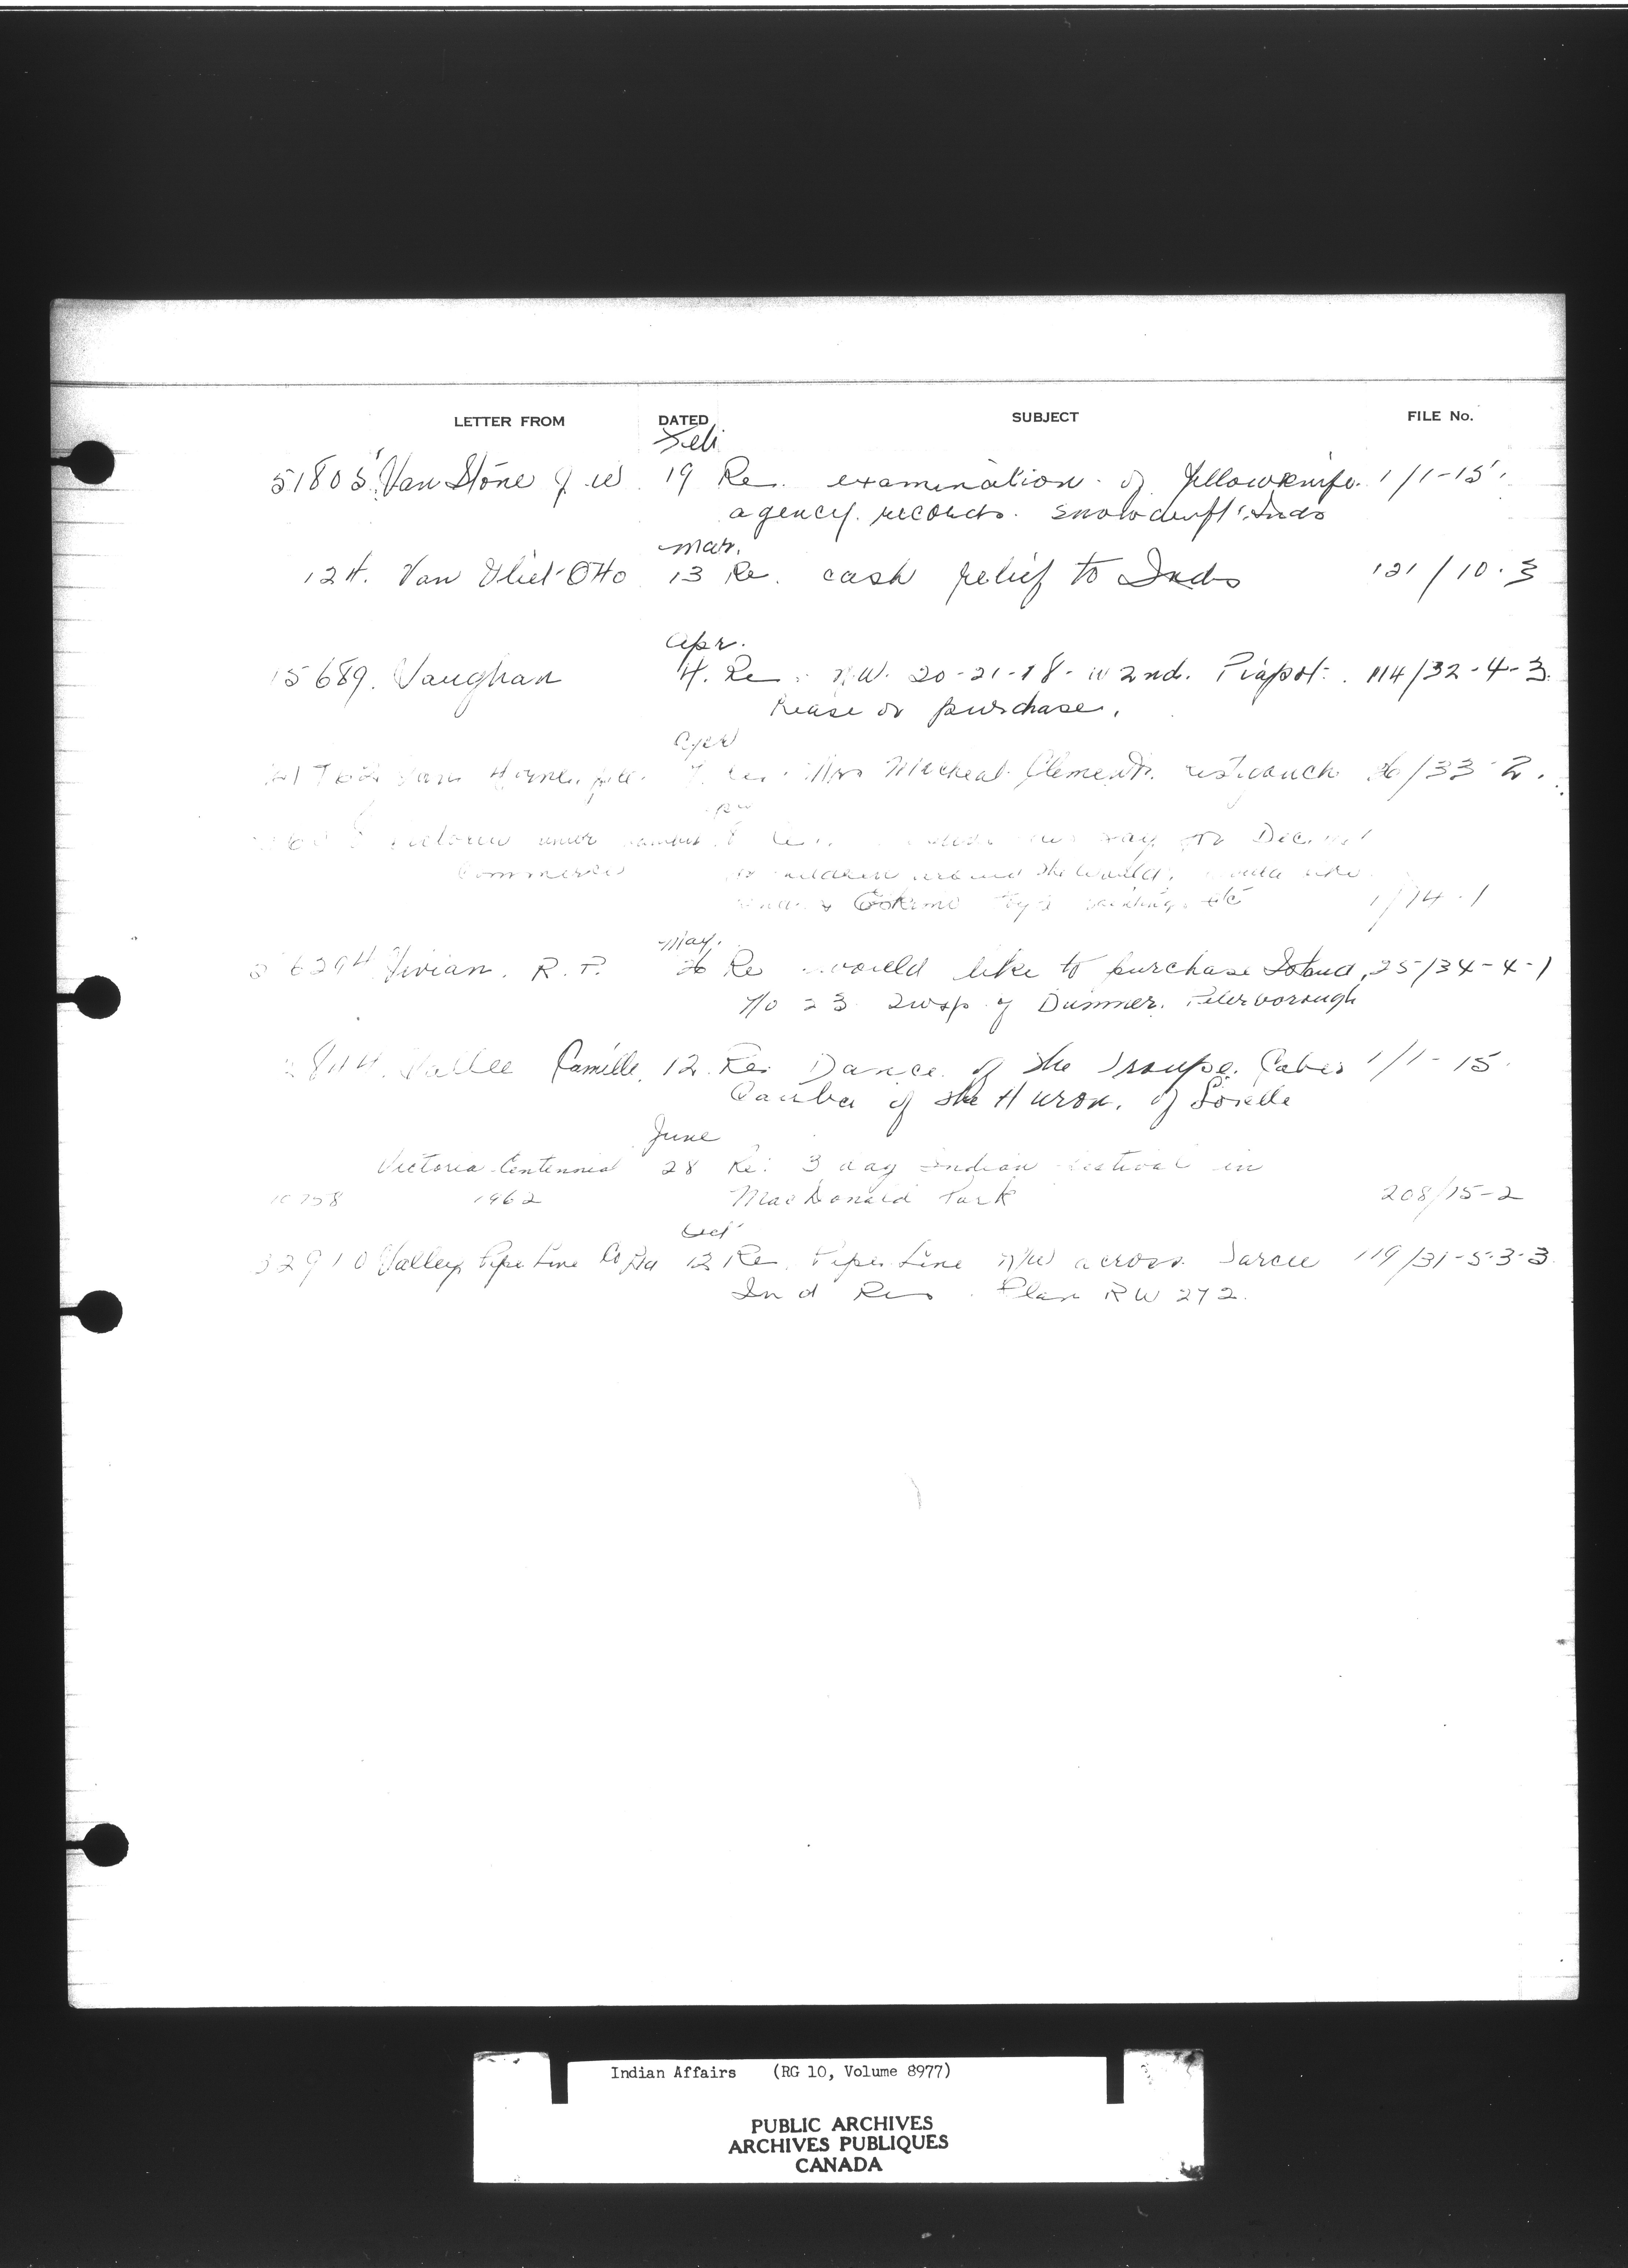 LETTER FROM DATED SUBJECT FILE No.
Feb
51805 Van Stone J. W. 19 Re. examination of Yellowknife 1/1-15
agency records. Snowdrift Inds
Mar.
124. Van Vliet Otto 13 Re. cash relief to Inds 121/10-3
Apr.
15689. Vaughan 4. Re N.W. 20-21-18-W 2nd. Piapot. 114/32-4-3
Lease or purchase.
Apr
Van Horne 7 Re. Mrs Micheal Clement. restigouch 36/33-2.
Apr
Victoria 8 Re Day Dec.
Commerce children around the world, would like
Eskimo toys paintings etc 1/14-1
May.
26294 Vivian. R. P. 26 Re would like to purchase Island, 25/34-4-1
No 23 Twsp of Dummer. Peterborough
Vallee Camille. 12. Re. Dance of the Troupe. 1/1-15.
of the Huron. of Lorette
June
Victoria Centennial 28 Re: 3 day Indian festival in
10758 1962 MacDonald Park 208/15-2
Oct
32910 Valley Pipe Line Co Ltd 12 Re. Pipe Line R/W across Sarcee 119/31-5-3-3
Ind Res. Plan RW 272.
Indian Affairs (RG 10, Volume 8977)
PUBLIC ARCHIVES
ARCHIVES PUBLIQUES
CANADA